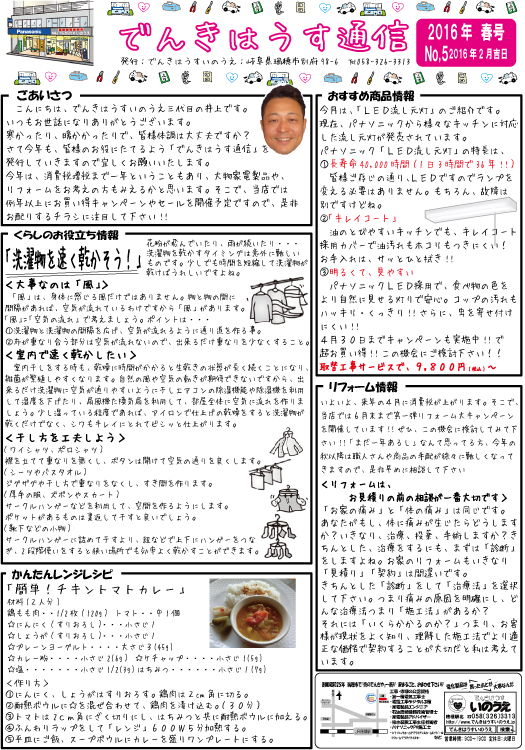 でんきはうす通信
2016年 春号
No,5 2016年2月吉日
Panasonic
発行：でんきはうすいのうえ：岐阜県瑞穂市別府98-6 ℡058-326-3313
ごあいさつ
こんにちは、でんきはうすいのうえ三代目の井上です。
いつもお世話になりありがとうございます。
寒かったり、暖かかったりで、皆様体調は大丈夫ですか？
さて今年も、皆様のお役にたてるよう「でんきはうす通信」を
発行していきますので宜しくお願いいたします。
今年は、消費税増税まで一年ということもあり、大物家電製品や、
リフォームをお考えの方もみえるかと思います。そこで、当店では
例年以上にお買い得キャンペーンやセールを開催予定ですので、是非
お配りするチラシに注目して下さい！！
くらしのお役立ち情報
「洗濯物を速く乾かそう！」
花粉が飛んでいたり、雨が続いたり・・・
洗濯物を乾かすタイミングは意外に難しい
ものです。少しでも時間を短縮して洗濯物が
乾けばうれしいですよね。
＜大事なのは「風」＞
「風」は、身体に感じる風だけではありません。物と物の間に
間隔があれば、空気が流れているわけですから「風」があります。
「風」＝「空気の流れ」で考えましょう。ポイントは・・・
①洗濯物と洗濯物の間隔を広げ、空気が流れるように通り道を作る事。
②布が重なり合う部分は空気が流れないので、出来るだけ重なりを少なくすること。
＜室内で速く乾かしたい＞
室内干しをする時も、乾燥に時間がかかると生乾きの状態が長く続くことになり、
雑菌が繁殖しやすくなります。自然の風や空気の動きが期待できないですから、出
来るだけ洗濯物に空気が通りやすいように干しエアコンの除湿機能や除湿機を利用
して湿度を下げたり、扇風機で換気扇を利用して、部屋全体に空気に流れを作りま
しょう。少し湿っている程度であれば、アイロンで仕上げの乾燥をすると洗濯物が
乾くだけでなく、シワもキレイにとれてビシッと仕上がります。
＜干し方を工夫しよう＞
（ワイシャツ、ポロシャツ）
襟を立てて重なりを無くし、ボタンは開けて空気の通りを良くします。
（シーツやバスタオル）
ジグザグや干し方で重なりをなくし、すき間を作ります。
（厚手の服、ズボンやスカート）
サークルハンガーなどを利用して、空間を作るようにします。
ポケットがあるものは裏返して干すと良いでしょう。
（靴下などの小物）
サークルハンガーに詰めて干すより、紐などで上下にハンガーをつな
ぎ、2段階使いをすると狭い場所でも効率よく乾かすことができます。
かんたんレンジレシピ
「簡単！チキントマトカレー」
材料（2人分）
鶏もも肉・・1/2枚（120g） トマト・・中1個
☆にんにく（すりおろし）・・・小さじ1
☆しょうが（すりおろし）・・・小さじ1
☆プレーンヨーグルト・・・・大さじ3（45g）
☆カレー粉・・・・小さじ2（6g） ☆ケチャップ・・・・小さじ1（5g）
☆塩・・・・・・・小さじ1/2（3g） はちみつ・・・・・・小さじ1（7g）
＜作り方＞
①にんにく、しょうがはすりおろす。鶏肉は2cm角に切る。
②耐熱ボウルに☆を混ぜ合わせて、鶏肉を漬け込む。（30分）
③トマトは2cm角にざく切りにし、はちみつと共に耐熱ボウルに加える。
④ふんわりラップをして「レンジ」600W5分加熱する。
⑤平皿にご飯、スープボウルにカレーを盛りワンプレートにする。
おすすめ商品情報
今月は、「LED流し元灯」のご紹介です。
現在、パナソニックから様々なキッチンに対応
した流し元灯が発売されています。
パナソニック「LED流し元灯」の特長は、
①長寿命40,000時間（1日3時間で36年！！）
皆様ご存じの通り、LEDですのでランプを
変える必要はありません。もちろん、故障は
別ですけどね。
②「キレイコート」
油のとびやすいキッチンでも、キレイコート
採用カバーで油汚れもホコリもつきにくい！
お手入れは、サッとひと拭き！！
③明るくて、見やすい
パナソニックLED採用で、食べ物の色を
より自然に見せる灯りで安心。コップの汚れも
ハッキリ・くっきり！！さらに、男を寄せ付け
にくい！！
4月30日までキャンペーンも実施中！！で
超お買い得！！この機会にご検討下さい！！
取替工事サービスで、9,800円（税込）～
リフォーム情報
いよいよ、来年の4月に消費税が上がります。そこで、
当店では6月末まで第一弾リフォーム大キャンペーン
を開催しています！！ぜひ、この機会に検討してみて下
さい！！「まだ一年あるし」なんて思ってる方、今年の
秋以降は職人さんや商品の手配が徐々に難しくなって
きますので、是非早めに相談して下さい
＜リフォームは、
お見積りの前の相談が一番大切です＞
「お家の痛み」と「体の痛み」は同じです。
あなたがもし、体に痛みが生じたらどうします
か？いきなり、治療、投薬、手術しますか？き
ちんとした、治療をするにも、まずは「診断」
をしますよね。お家のリフォームもいきなり
「見積り」「契約」は間違いです。
きちんとした「診断」をして「治療法」を選択
して下さい。つまり痛みの原因を明確にし、ど
んな治療法つまり「施工法」があるか？
それには「いくらかかるのか？」つまり、お客
様が現状をよく知り、理解した施工法でより適
正な価格で契約することが大切だと私は考えて
います。
でんきはうす
いのうえ
☎058(326)3313